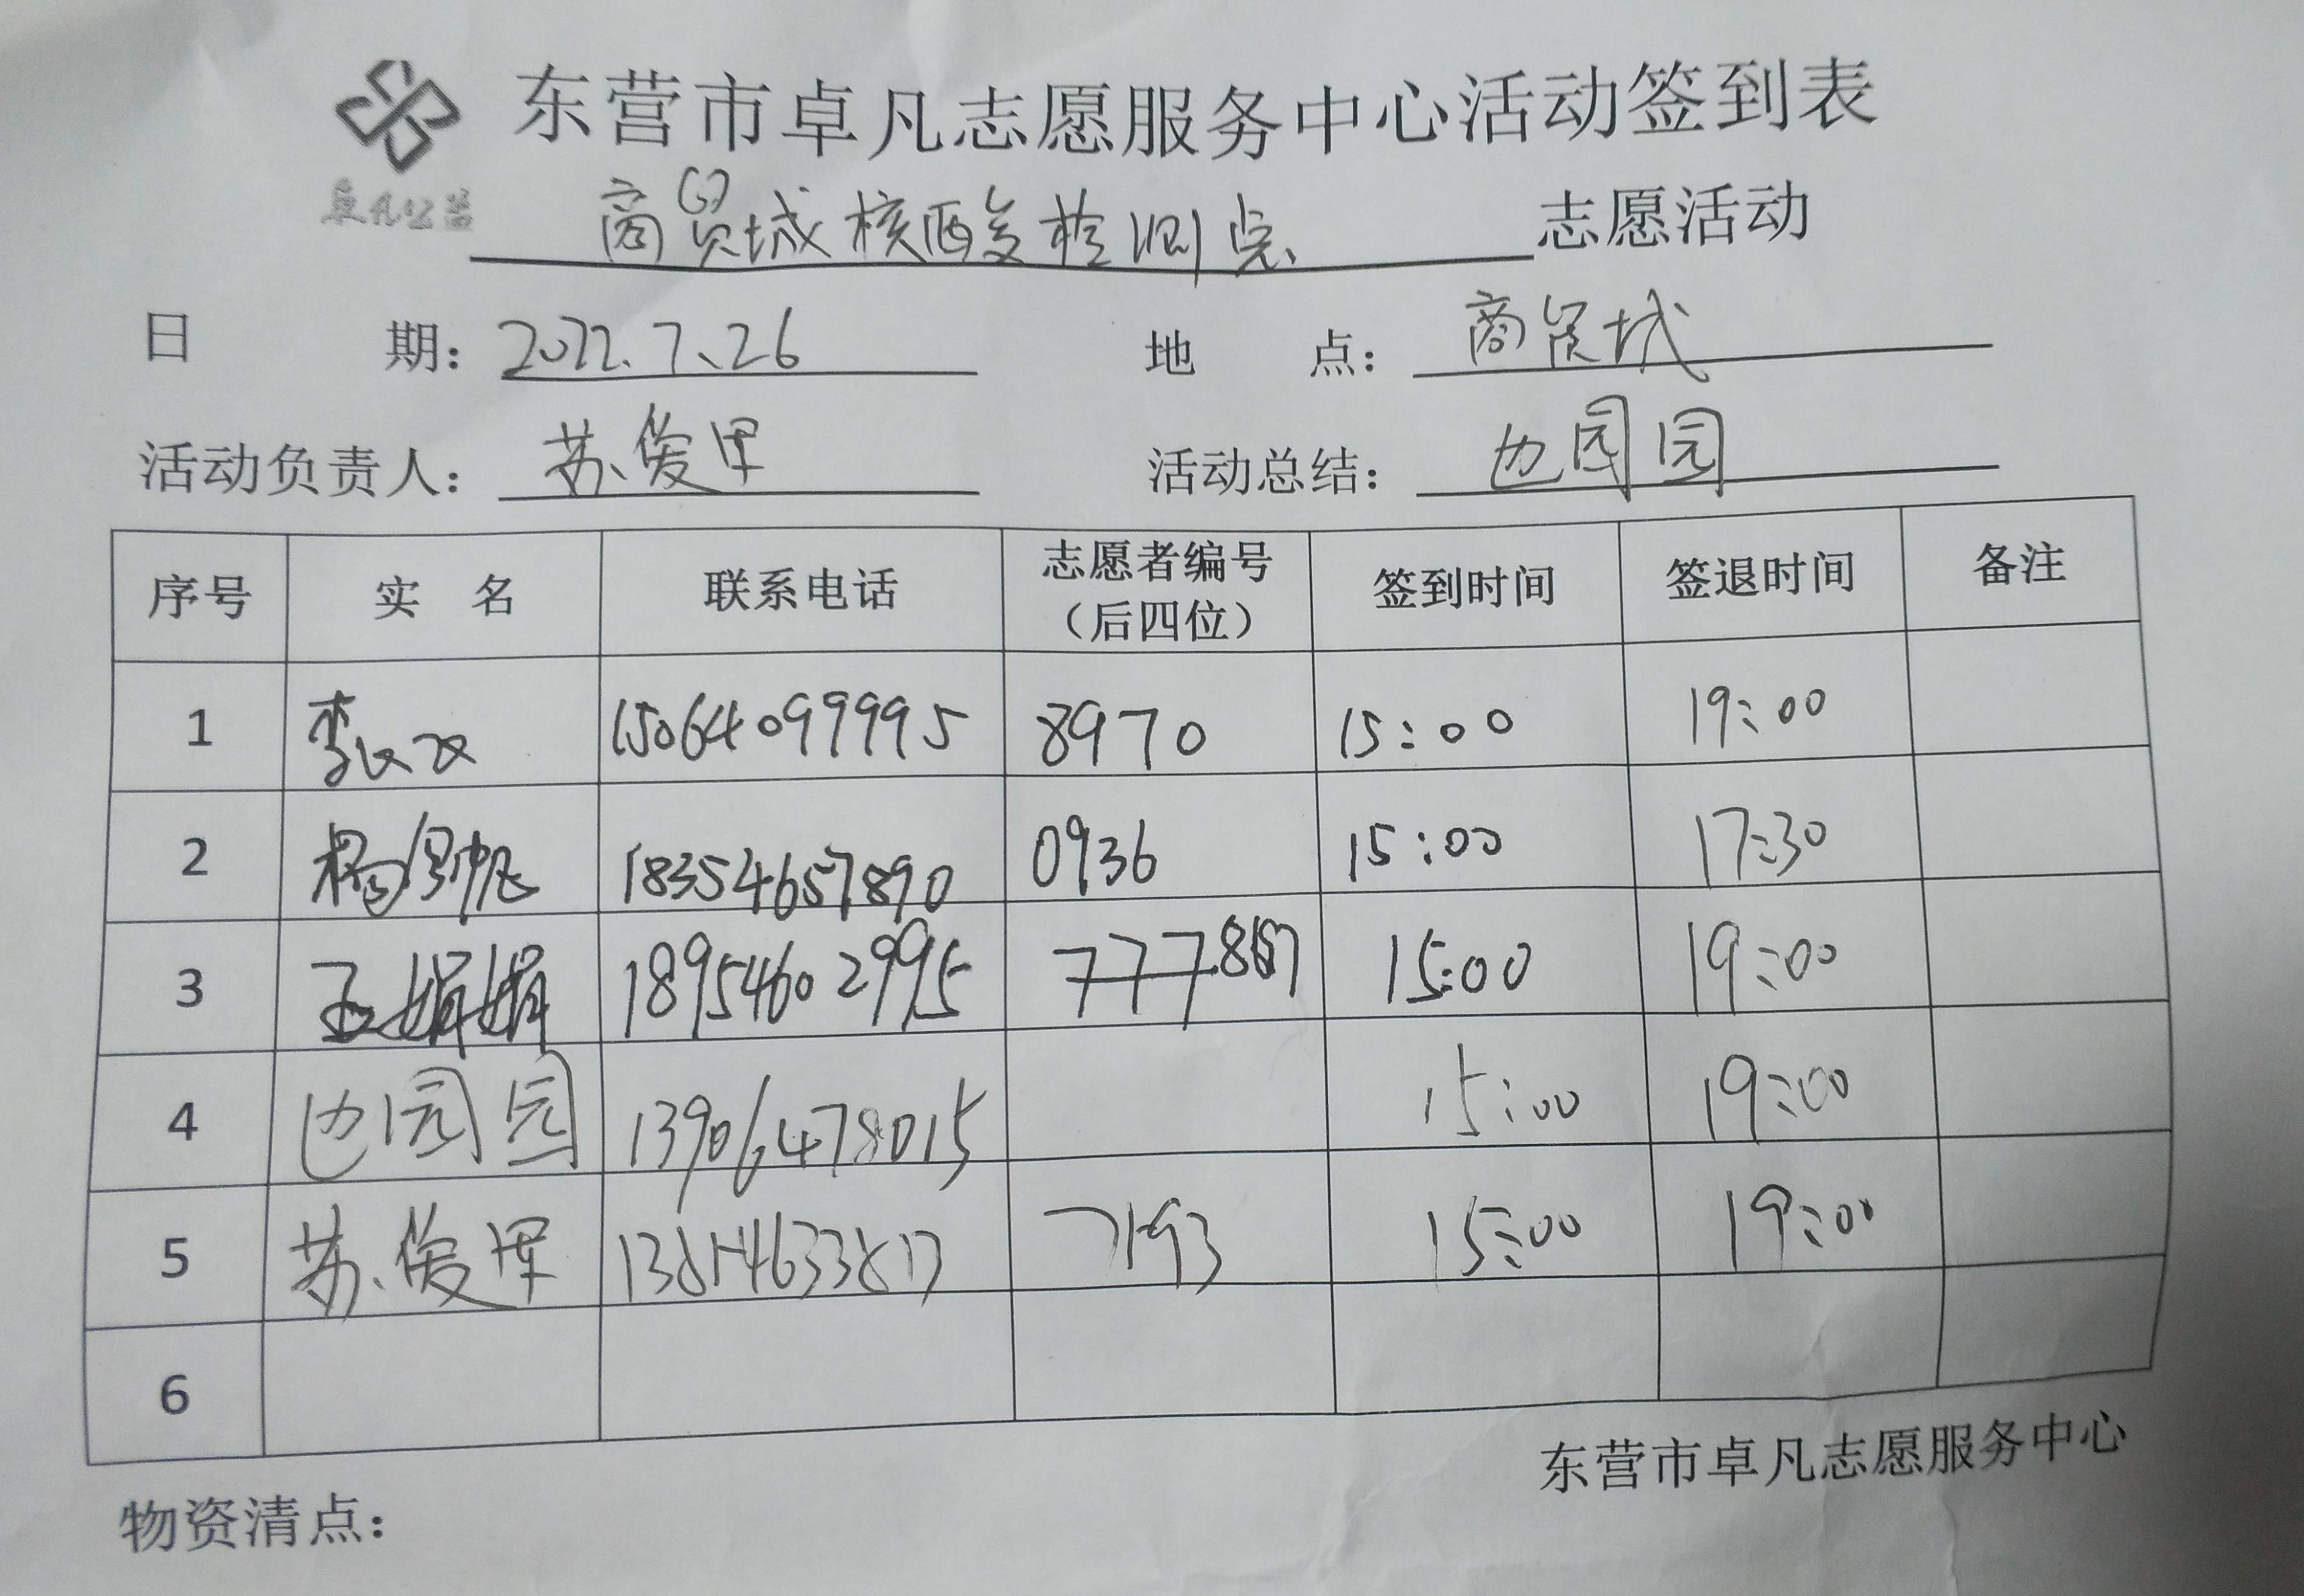 东营市卓凡志愿服务中心活动签到表
卓凡公益
商贸城核酸检测点 志愿活动
日 期: 2022.7.26 地 点: 商贸城
活动负责人: 苏俊军 活动总结: 边园园
序号 实 名 联系电话 志愿者编号 (后四位) 签到时间 签退时间 备注
1 李双双 15064099995 8970 15:00 19:00
2 杨帆 18354657890 0936 15:00 17:30
3 王娟娟 18954602995 777 15:00 19:00
4 边园园 13906478015 15:00 19:00
5 苏俊军 7193 15:00 19:00
6
东营市卓凡志愿服务中心
物资清点: